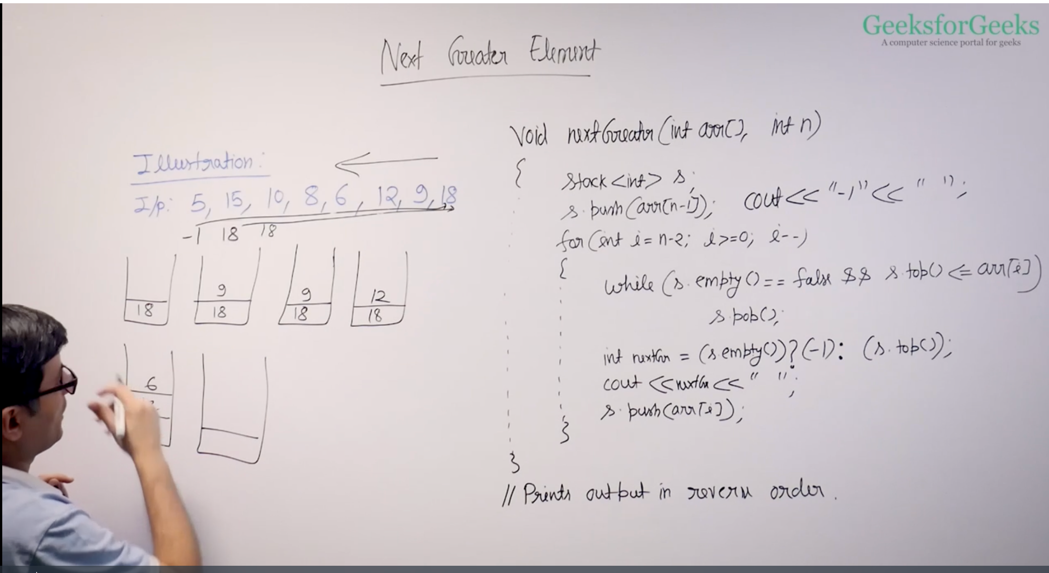 GeeksforGeeks
A computer science portal for geeks
Next Greater Element
Illustration:
I/p: 5, 15, 10, 8, 6, 12, 9, 18
-1 18 18
18
9
18
9
18
12
18
6
void nextGreater(int arr[], int n)
{
stack<int> s;
s.push(arr[n-1]); cout<<"-1"<<" ";
for(int i=n-2; i>=0; i--)
{
while(s.empty()==false && s.top()<=arr[i])
s.pop();
int nextGr = (s.empty())?(-1): (s.top());
cout<<nextGr<<" ";
s.push(arr[i]);
}
}
// Prints output in reverse order.